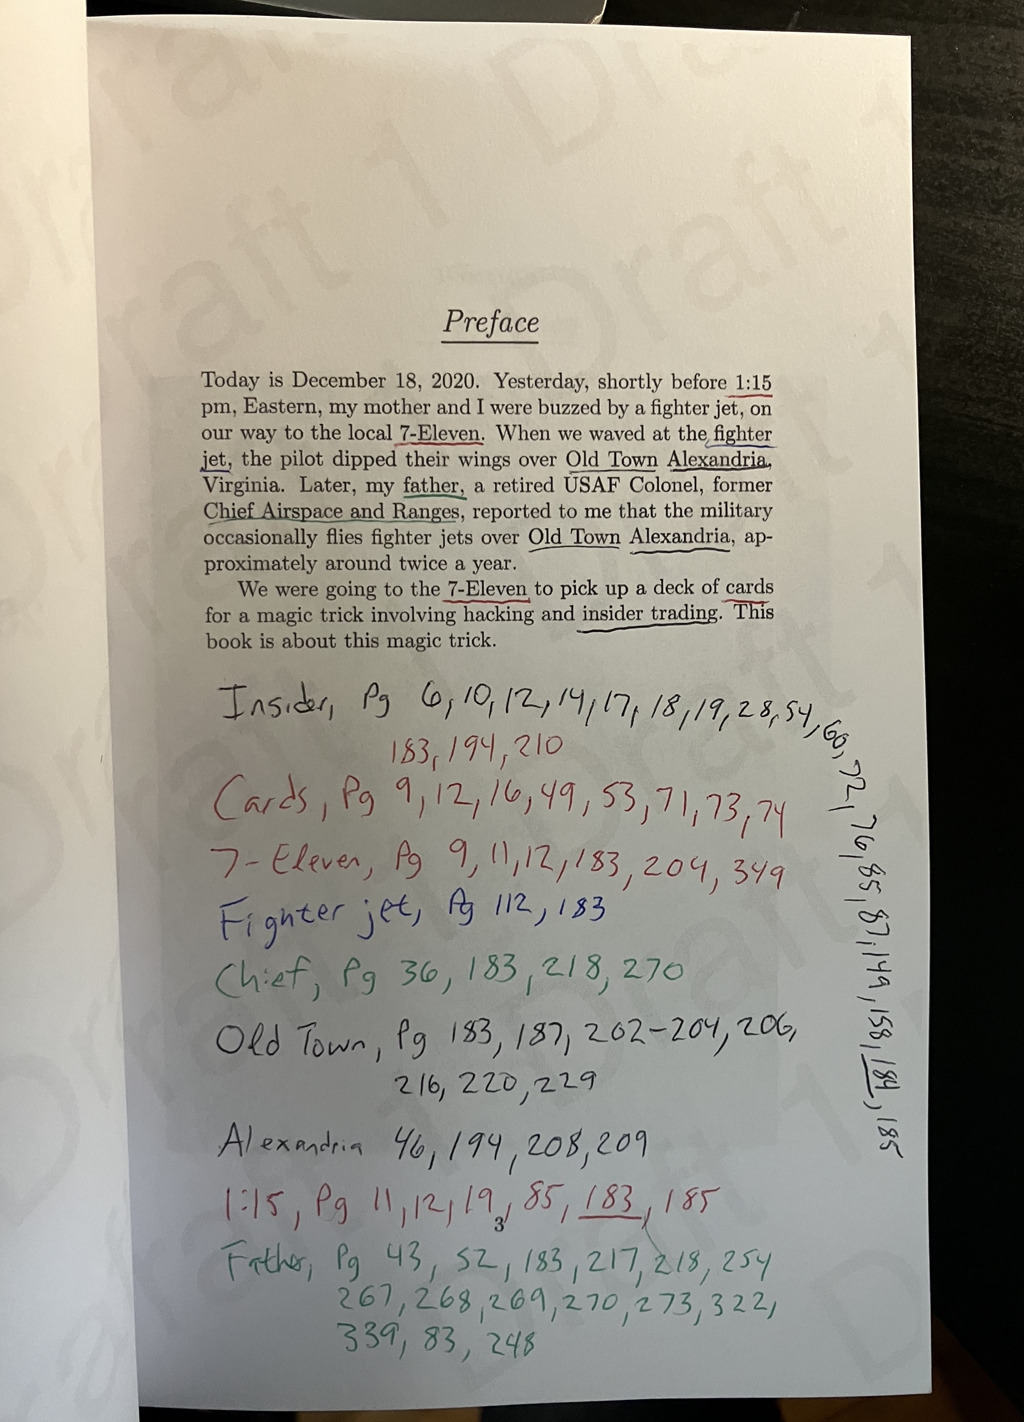 Draft 1 Draft 1
Preface
Today is December 18, 2020. Yesterday, shortly before 1:15
pm, Eastern, my mother and I were buzzed by a fighter jet, on
our way to the local 7-Eleven. When we waved at the fighter
jet, the pilot dipped their wings over Old Town Alexandria,
Virginia. Later, my father, a retired USAF Colonel, former
Chief Airspace and Ranges, reported to me that the military
occasionally flies fighter jets over Old Town Alexandria, ap-
proximately around twice a year.
We were going to the 7-Eleven to pick up a deck of cards
for a magic trick involving hacking and insider trading. This
book is about this magic trick.
Insider, Pg 6, 10, 12, 14, 17, 18, 19, 28, 54, 60, 72, 76, 85, 87, 149, 158, 184, 185
183, 194, 210
Cards, Pg 9, 12, 16, 49, 53, 71, 73, 74
7-Eleven, Pg 9, 11, 12, 183, 204, 349
Fighter jet, Pg 112, 183
Chief, Pg 36, 183, 218, 270
Old Town, Pg 183, 187, 202-204, 206,
216, 220, 229
Alexandria 46, 194, 208, 209
1:15, Pg 11, 12, 19, 85, 183, 185
3
Father, Pg 43, 52, 183, 217, 218, 254
267, 268, 269, 270, 273, 322,
339, 83, 248